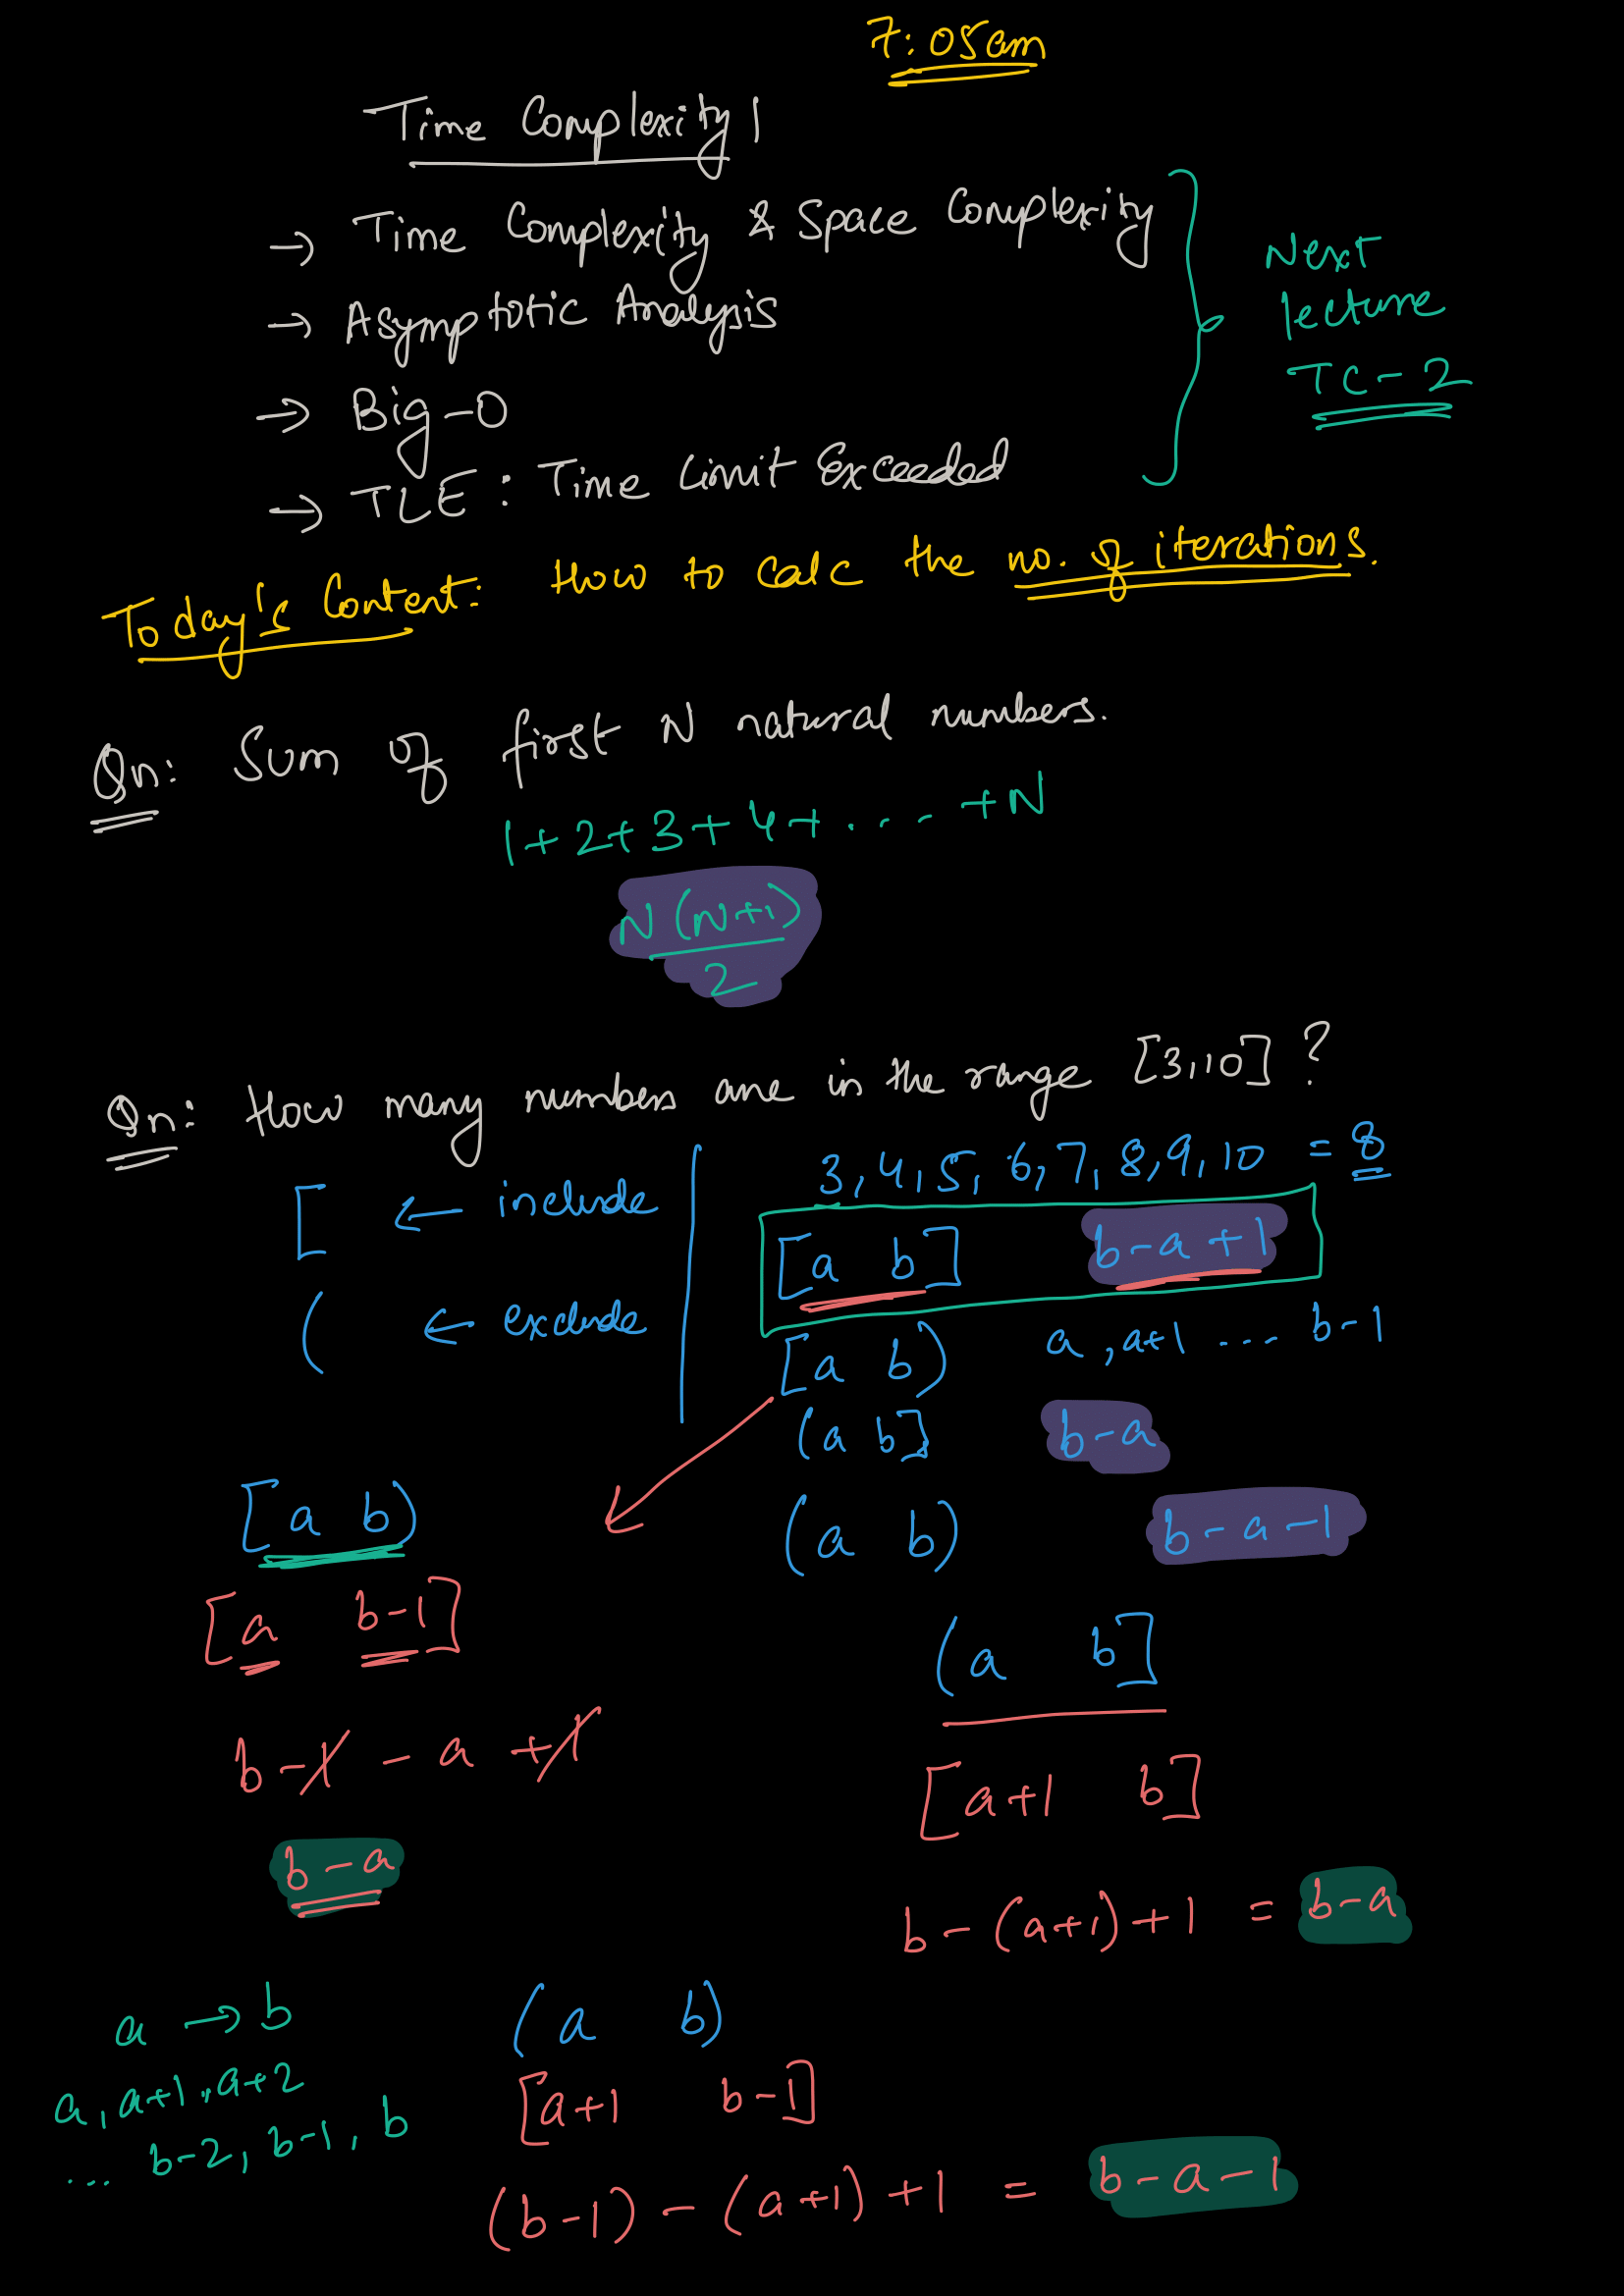 7:05am
Time Complexity 1
→ Time Complexity & Space Complexity
→ Asymptotic Analysis
→ Big-O
→ TLE : Time Limit Exceeded
Next
lecture
TC-2
Today's Content: How to calc the no. of iterations.
Qn: Sum of first N natural numbers.
1+2+3+4+.... +N
N(N+1)
2
Qn: How many numbers are in the range [3,10] ?
[ ← include
( ← exclude
3,4,5,6,7,8,9,10 = 8
[a b] b-a+1
[a b) a,a+1 .... b-1
(a b] b-a
(a b) b-a-1
[a b)
[a b-1]
b-1-a+1
b-a
(a b]
[a+1 b]
b-(a+1)+1 = b-a
a → b
a, a+1, a+2
... b-2, b-1, b
(a b)
[a+1 b-1]
(b-1)-(a+1)+1 = b-a-1